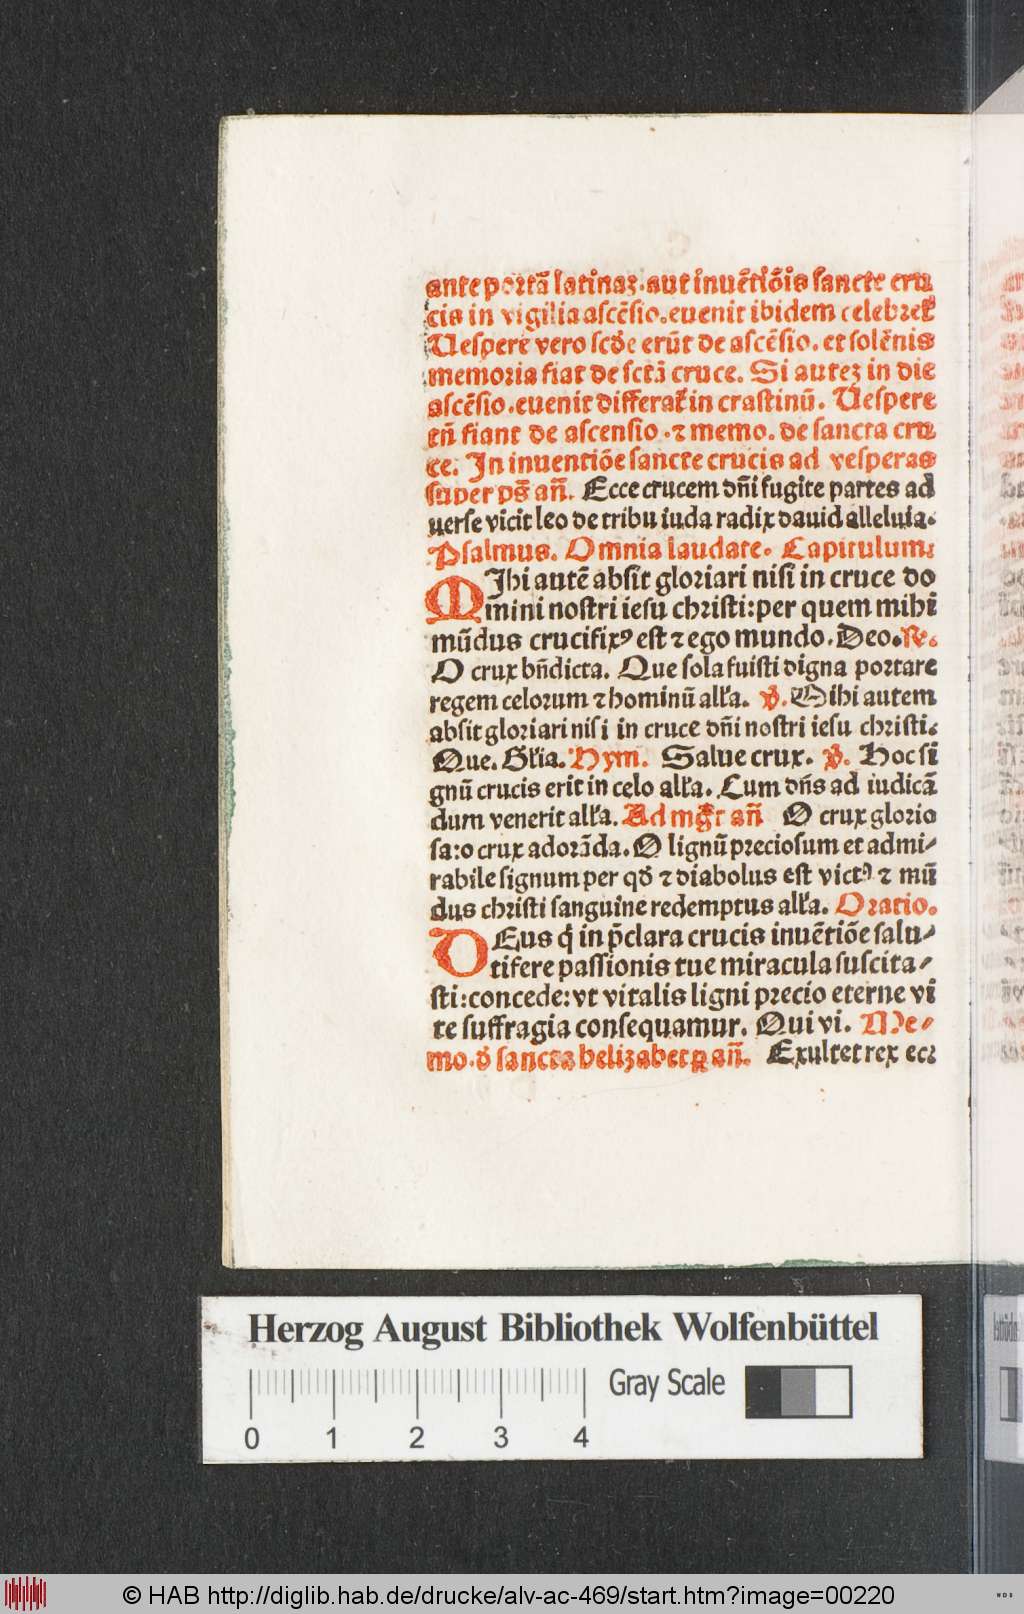 ante portā latinaꝫ.aut inuētiōis sancte cru
cis in vigilia ascēsio.euenit ibidem celebret᷑
Uespere vero scd̄e erūt de ascēsio. et solēnis
memoria fiat de sctā cruce. Si auteꝫ in die
ascēsio.euenit differat᷑ in crastinū. Uespere
tn̄ fiant de ascensio.⁊ memo. de sancta cru
ce. In inuentiōe sancte crucis ad vesperas
super ps̄ an̄. Ecce crucem dn̄i fugite partes ad
uerse vicit leo de tribu iuda radix dauid alleluia.
Psalmus. Omnia laudate. Capitulum:
MIhi autē absit gloriari nisi in cruce do
mini nostri iesu christi:per quem mihi
mūdus crucifixꝰ est ⁊ ego mundo. Deo. ℟.
O crux bn̄dicta. Que sola fuisti digna portare
regem celorum ⁊ hominū alľa. ℣. Mihi autem
absit gloriari nisi in cruce dn̄i nostri iesu christi.
Que. Gľia. Hym. Salue crux. ℣. Hoc si
gnū crucis erit in celo alľa. Cum dn̄s ad iudicā
dum venerit alľa. Ad mgꝭt an̄ O crux glorio
sa:o crux adorāda. O lignū preciosum et admi⸗
rabile signum per qd̄ ⁊ diabolus est victꝰ ⁊ mū
dus christi sanguine redemptus alľa. Oratio.
DEus q̇ in p̄clara crucis inuētiōe salu⸗
tifere passionis tue miracula suscita⸗
sti:concede:vt vitalis ligni precio eterne vi
te suffragia consequamur. Qui vi. Me⸗
mo. d̄ sanctaꝫ helizabetꝝ an̄. Exultet rex ec:
Herzog August Bibliothek Wolfenbüttel
Gray Scale
0 1 2 3 4
© HAB http://diglib.hab.de/drucke/alv-ac-469/start.htm?image=00220